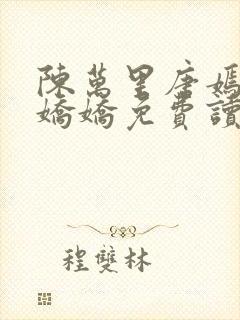 陳萬里唐嫣
嬌嬌免費讀
程雙林